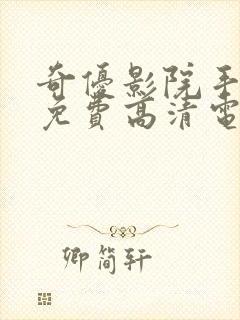 奇優影院手
免費高清電
卿簡軒